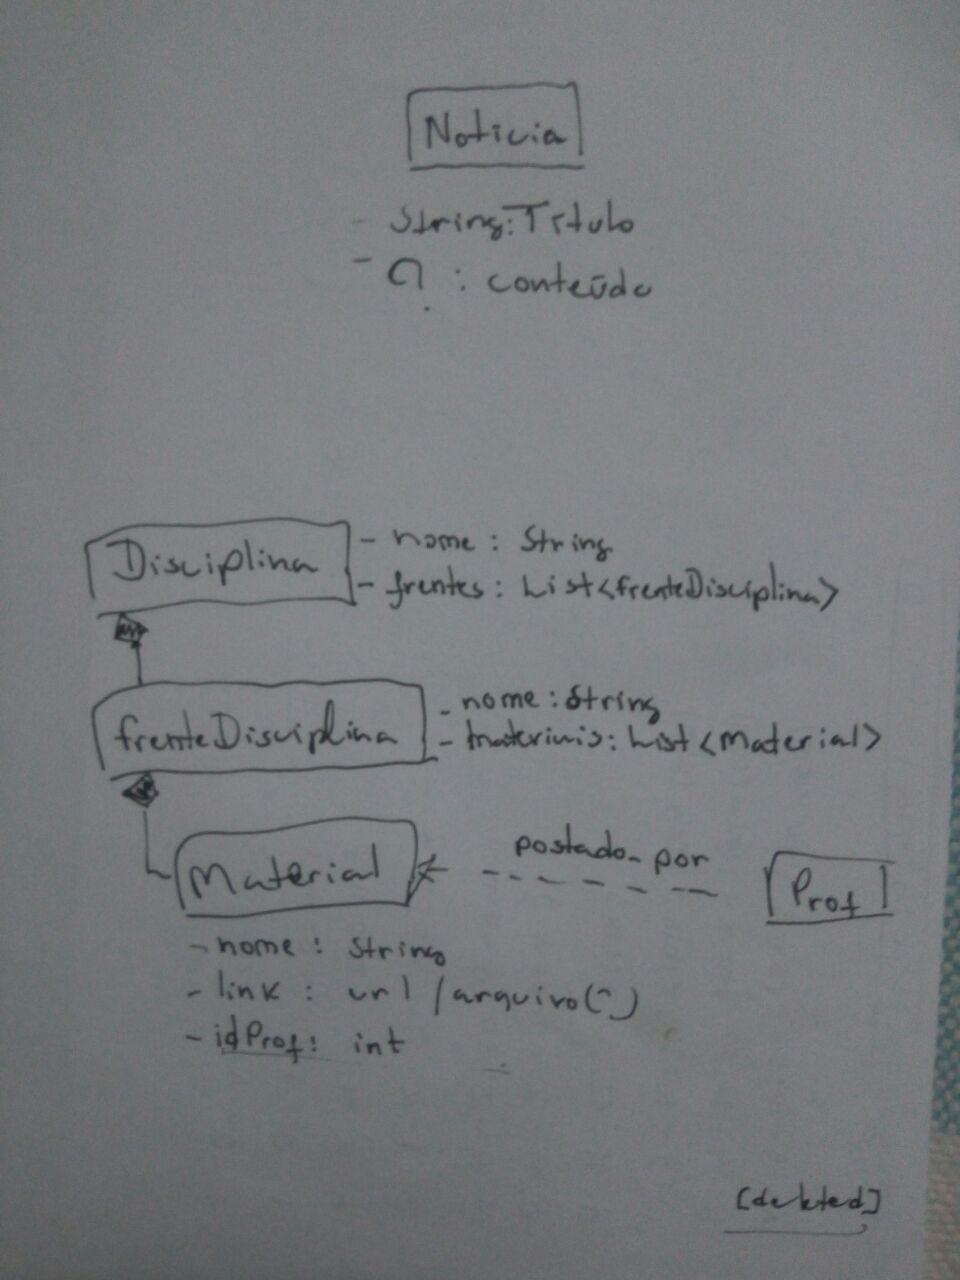 Noticia
- String: Título
- ? : conteúdo
Disciplina
- nome : String
- frentes : List<frenteDisciplina>
frenteDisciplina
- nome : String
- materiais : List<Material>
Material
postado_por
Prof
- nome : String
- link : url /arquivo(~)
- idProf : int
[deleted]